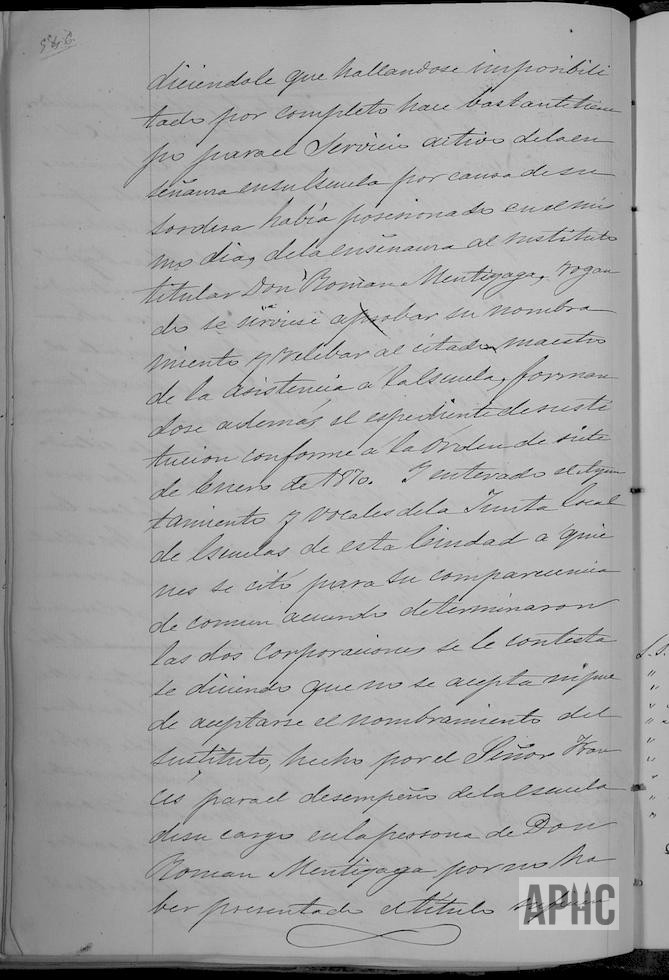 546.
diciendole que hallandose imposibili
tado por completo hace bastante tiem
po para el Servicio activo de la en
señanza en su Escuela por causa de su
sordera había posesionado en el mis
mo dia, de la enseñanza al instituto
titular Don Roman Mentigaga, rogan
do se sirviese aprobar su nombra
miento y relebar al citado maestro
de la asistencia a la Escuela, forman
dose además el espediente de susti
tucion conforme a la órden de siete
de Enero de 1870. Y enterado el Ayun
tamiento y vocales de la Junta local
de Escuelas de esta Ciudad a quie
nes se citó para su comparecencia
de comun acuerdo determinaron
las dos corporaciones se le contesta
se diciendo que no se acepta ni pue
de aceptarse el nombramiento del
sustituto, hecho por el Señor Fran
cés para el desempeño de la Escuela
de su cargo en la persona de Don
Roman Mentigaga por no ha
ber presentado el título
APHC